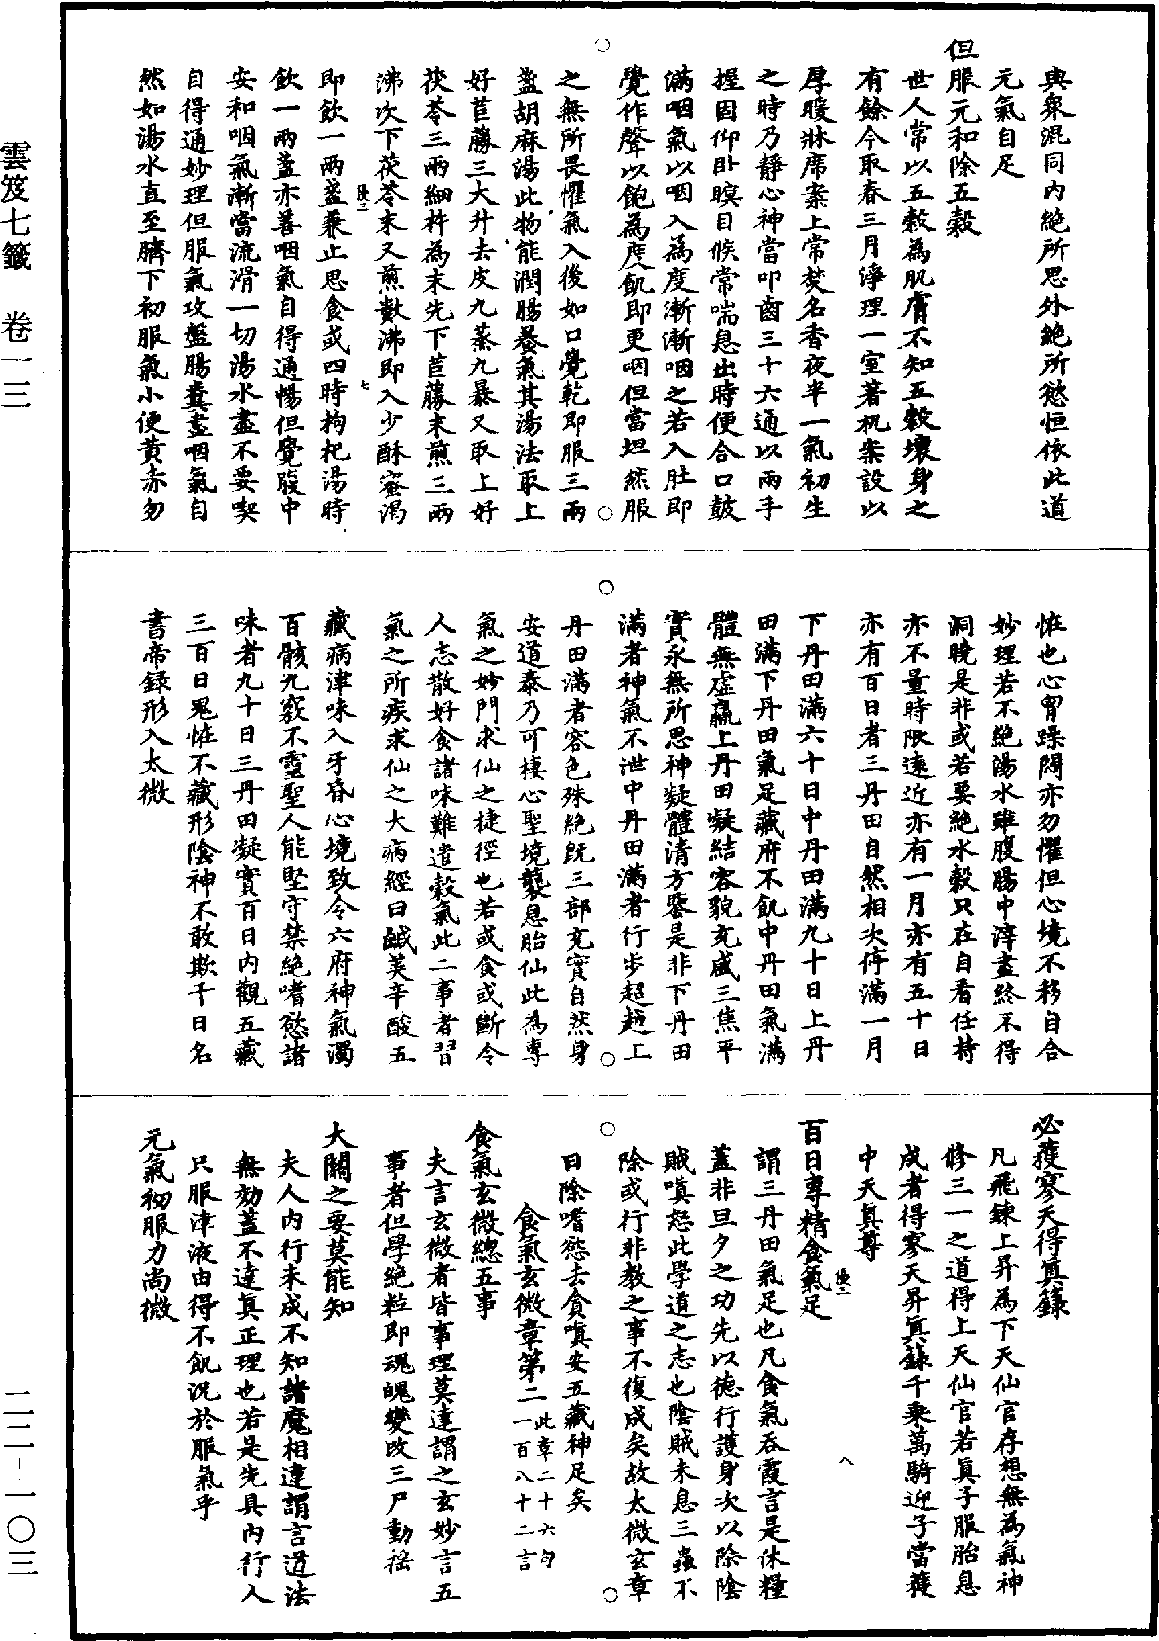 與衆混同內絶所思外絶所慾恒依此道
元氣自足
但服元和除五穀
世人常以五穀為肌膚不知五穀壞身之
有餘今取春三月淨理一室著机案設以
厚暖牀席案上常焚名香夜半一氣初生
之時乃靜心神當叩齒三十六通以兩手
握固仰卧瞑目候常喘息出時便合口鼓
滿咽氣以咽入為度漸漸咽之若入肚即
覺作聲以飽為度飢即更咽但當坦然服
之無所畏懼氣入後如口覺乾即服三兩
盞胡麻湯此物能潤腸養氣其湯法取上
好苣藤三大升去皮九蒸九暴又取上好
茯苓三兩細杵為末先下苣藤末煎三兩
沸次下茯苓末又煎數沸即入少酥蜜渴
即飲一兩盞兼止思食或四時枸杞湯時
飲一兩盞亦善咽氣自得通暢但覺腹中
安和咽氣漸當流滑一切湯水盡不要喫
自得通妙理但服氣攻盤腸糞盡咽氣自
然如湯水直至臍下初服氣小便黃赤勿
七
恠也心胷躁悶亦勿懼但心境不移自合
妙理若不絶湯水雖腹腸中滓盡終不得
洞曉是非或若要絶水穀只在自看任持
亦不量時限遠近亦有一月亦有五十日
亦有百日者三丹田自然相次停滿一月
下丹田滿六十日中丹田滿九十日上丹
田滿下丹田氣足藏府不飢中丹田氣滿
體無虛羸上丹田凝結容貌充盛三焦平
實永無所思神凝體清方鑒是非下丹田
滿者神氣不泄中丹田滿者行步超越上
丹田滿者容色殊絶既三部充實自然身
安道泰乃可棲心聖境襲息胎仙此為專
氣之妙門求仙之捷徑也若或食或斷令
人志散好食諸味難遣穀氣此二事者習
氣之所疾求仙之大病經曰鹹美辛酸五
藏病津味入牙昏心境致令六府神氣濁
百骸九竅不靈聖人能堅守禁絶嗜慾諸
味者九十日三丹田凝實百日內觀五藏
三百日鬼恠不藏形陰神不敢欺千日名
書帝錄形入太微
必獲寥天得真籙
凡飛鍊上昇為下天仙官存想無為氣神
修三一之道得上天仙官若真子服胎息
成者得寥天昇真籙千乘萬騎迎子當獲
中天真尊
八
百日專精食氣足
謂三丹田氣足也凡食氣吞霞言是休糧
蓋非旦夕之功先以德行護身次以除陰
賊嗔怒此學道之志也陰賊未息三蟲不
除或行非教之事不復成矣故太微玄章
曰除嗜慾去貪嗔安五藏神足矣
食氣玄微章第二此章二十六句
一百八十二言
食氣玄微總五事
夫言玄微者皆事理莫達謂之玄妙言五
事者但學絶粒即魂魄變改三尸動搖
大關之要莫能知
夫人內行未成不知諸魔相違謂言道法
無効蓋不達真正理也若是先具內行人
只服津液由得不飢況於服氣乎
元氣初服力尚微
雲笈七籤 卷一三
二二-一〇三